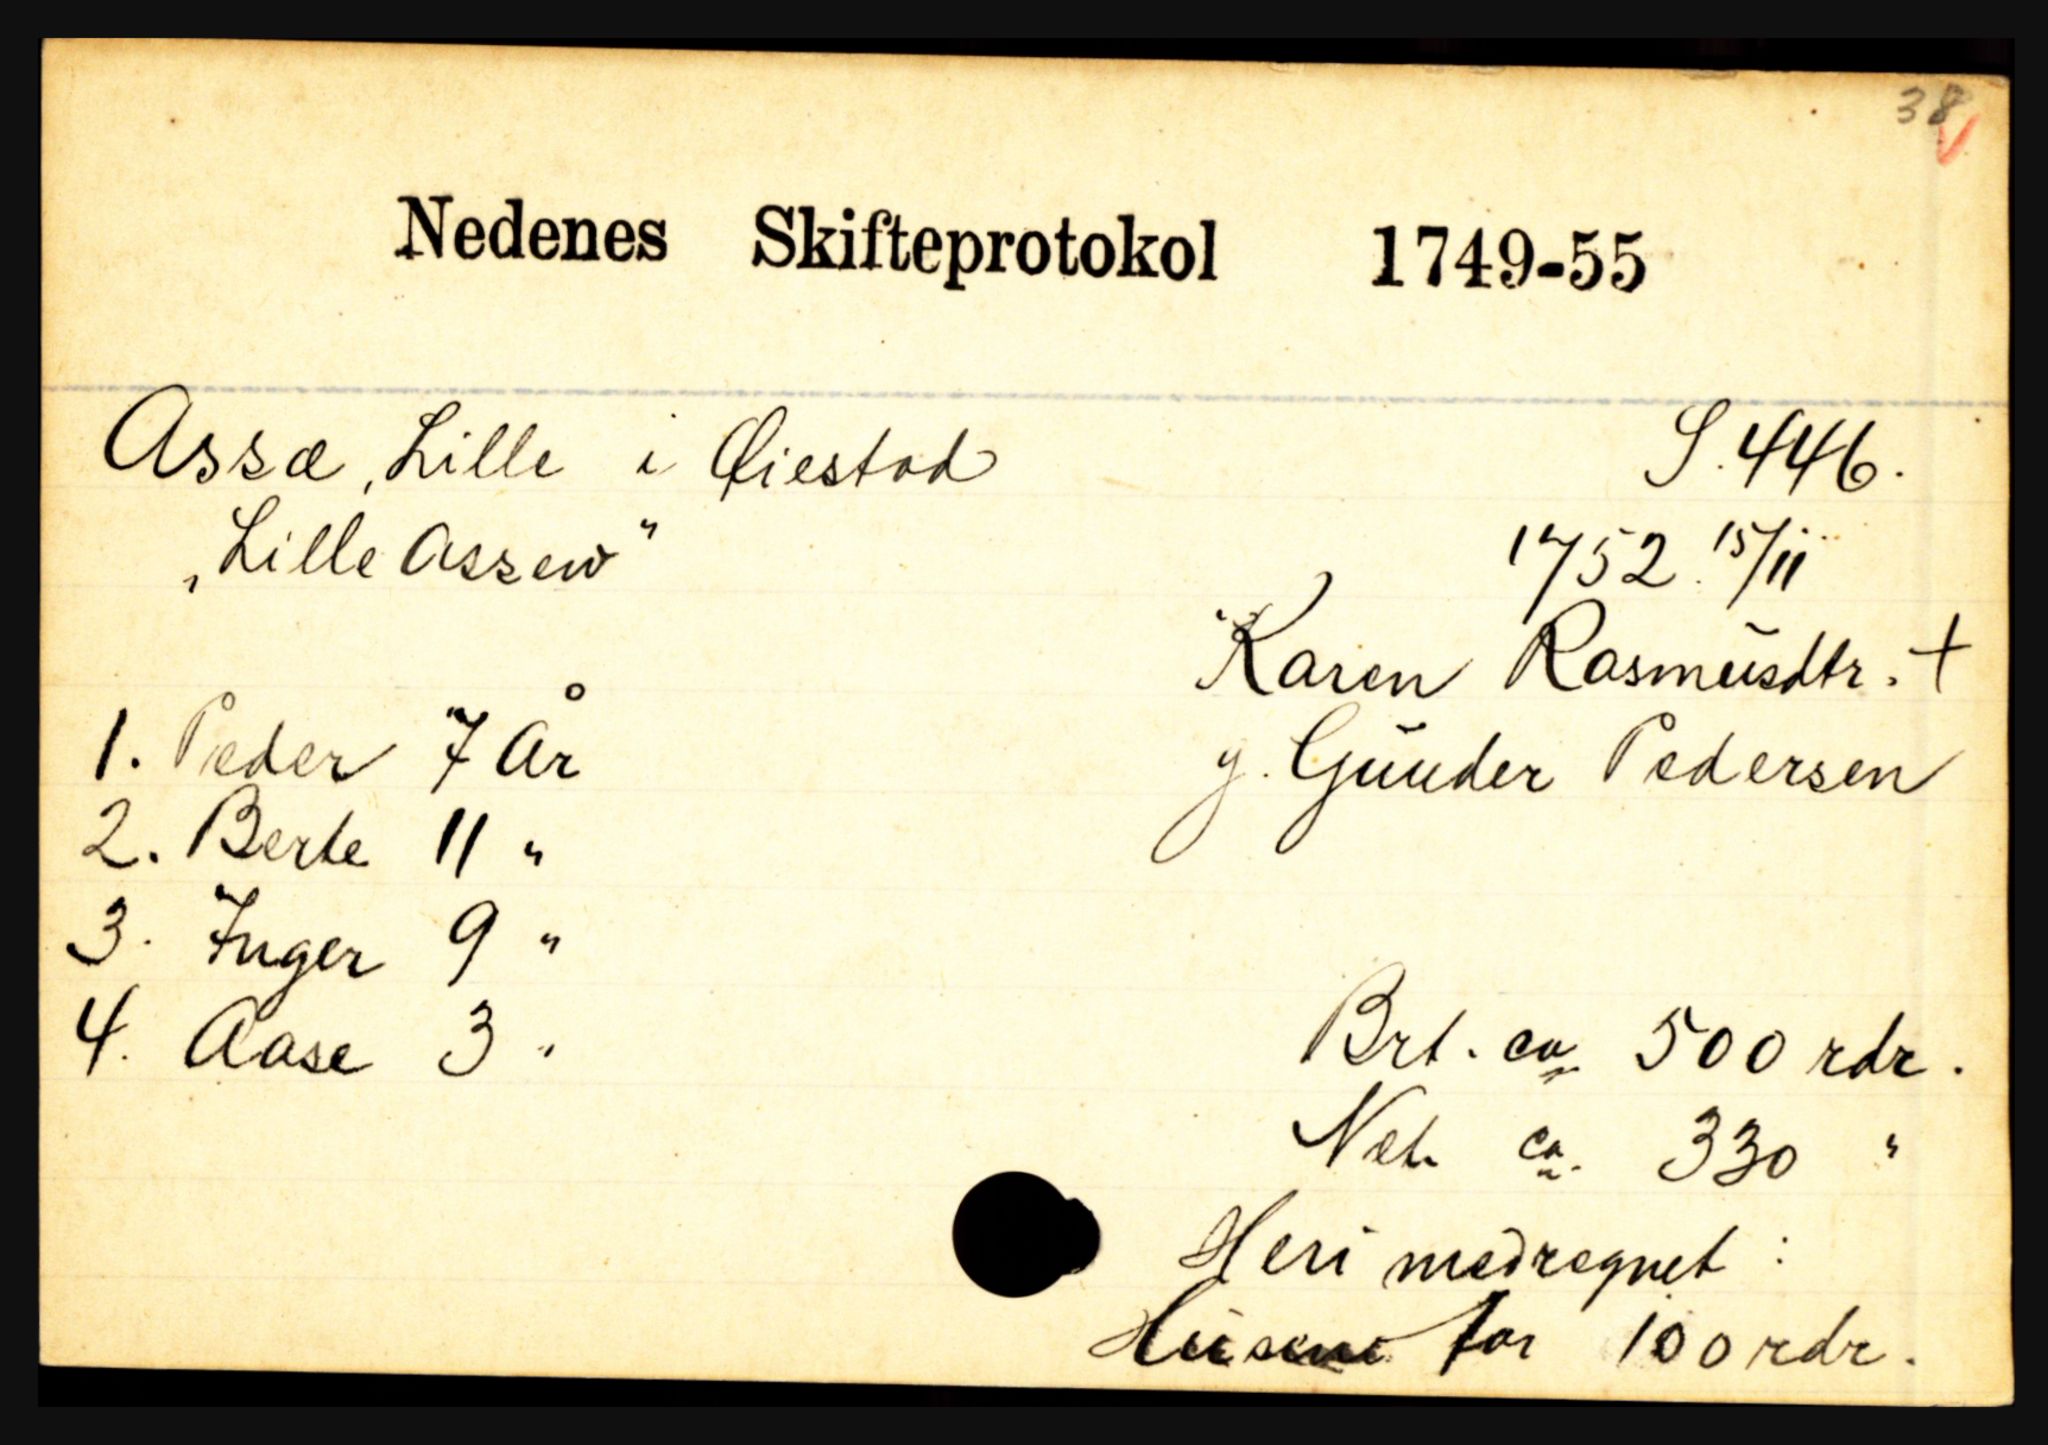 38
Nedenes Skifteprotokol 1749-55
Assæ, Lille i Øiestad S. 446.
„Lille Assew" 1752 15/11
Karen Rasmusdtr. +
1. Peder 7 År g. Gunder Pedersen
2. Berte 11 "
3. Inger 9 "
4. Aase 3 " Brt. ca 500 rdr.
Net. ca. 330 "
Heri medregnet:
Husene for 100 rdr.